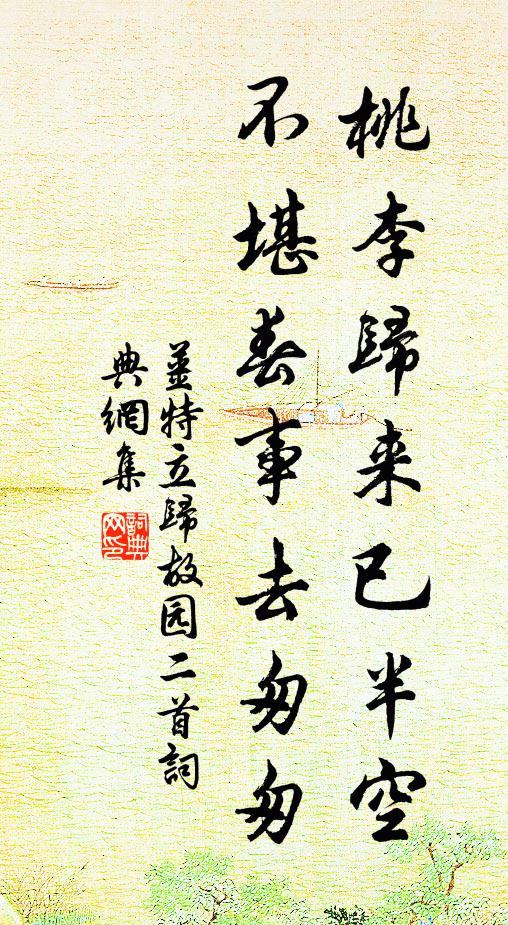 桃李歸来已半空
不堪春事去匆匆
姜特立歸故园二首詞
典網集
詞典
网印